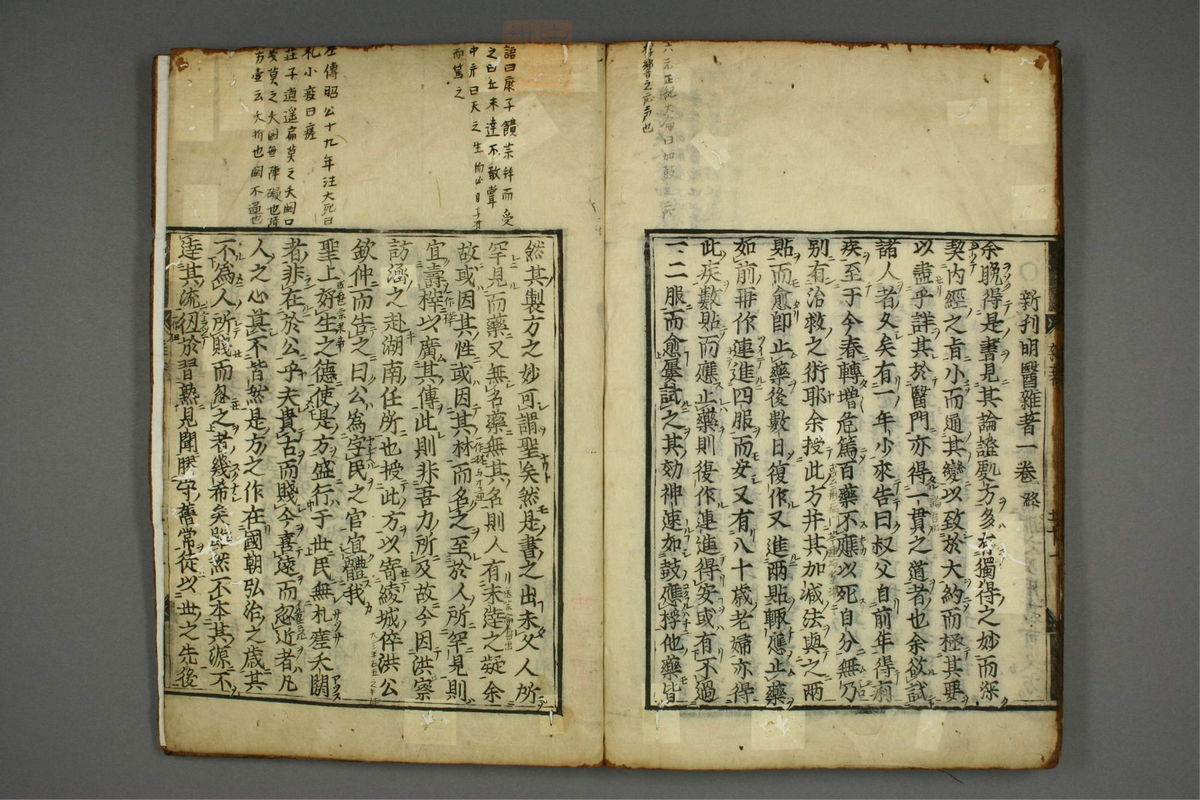 新刊明醫雜著一卷終
余晚得是書見其論證製方多有獨得之妙而深
契內經之旨小而通其變以致於大約而極其要
以盡乎詳其於醫門亦得一貫之道者也余欲試
諸人者久矣有一年少來告曰叔父自前年得有
疾至于今春轉增危篤百藥不應以死自分無乃
別有治救之術耶余授此方并其加减法與之兩
貼而愈即止藥後數日復作又進兩貼輒應止藥
如前再作連進四服而安又有八十歲老婦亦得
此疾數貼而應止藥則復作連進得安或有不過
一二服而愈屢試之其効神速如鼓應桴他藥皆
然其製方之妙可謂聖矣然是書之出未久人所
罕見而藥又無名藥無其名則人有未達之疑余
故或因其性或因其材而名之至於人所罕見則
宜壽榟以廣其傳此則非吾力所及故今因洪察
訪濟之赴湖南任所也授此方以寄綾城倅洪公
欽仲而告之曰公爲字民之官宜體我
聖上好生之德使是方盛行于世民無札瘥夭閼
者非在於公乎夫貴古而賤今喜遠而忽近者凡
人之心莫不皆然是方之作在國朝弘治之歲其
不爲人所賤而忽之者幾希矣雖然不本其源不
達其流狃於習熟見聞膠守舊常徒以世之先後
語曰康子饋藥拜而受
之曰丘未達不敢嘗
中庸曰天之生物必因其材
而篤之
左傳昭公十九年注大死曰
札小疫曰瘥
莊子逍遥篇莫之夭閼口